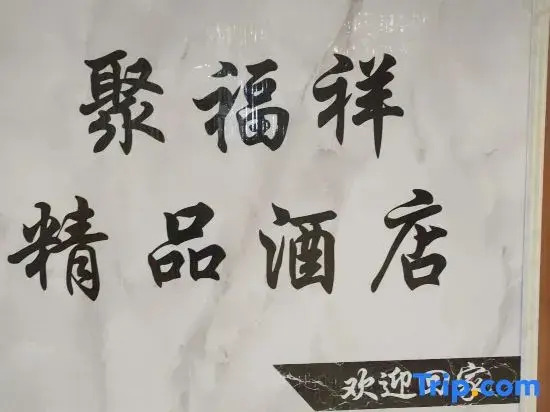 聚福祥
精品酒店
欢迎回家
Trip.com